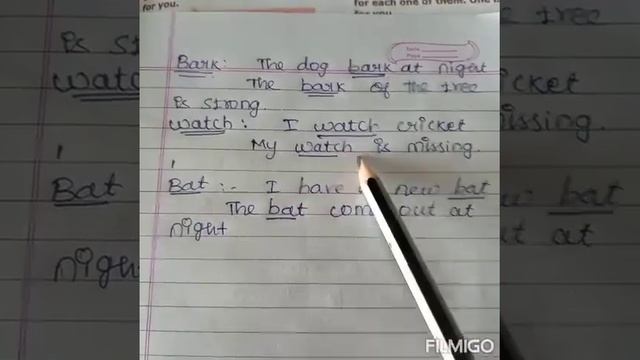 for you.
each one of them. One
Bark: The dog bark at night
The bark of the tree
is strong.
watch: I watch cricket
My watch is missing.
Bat :- I have new bat
The bat com out at
night
FILMIGO